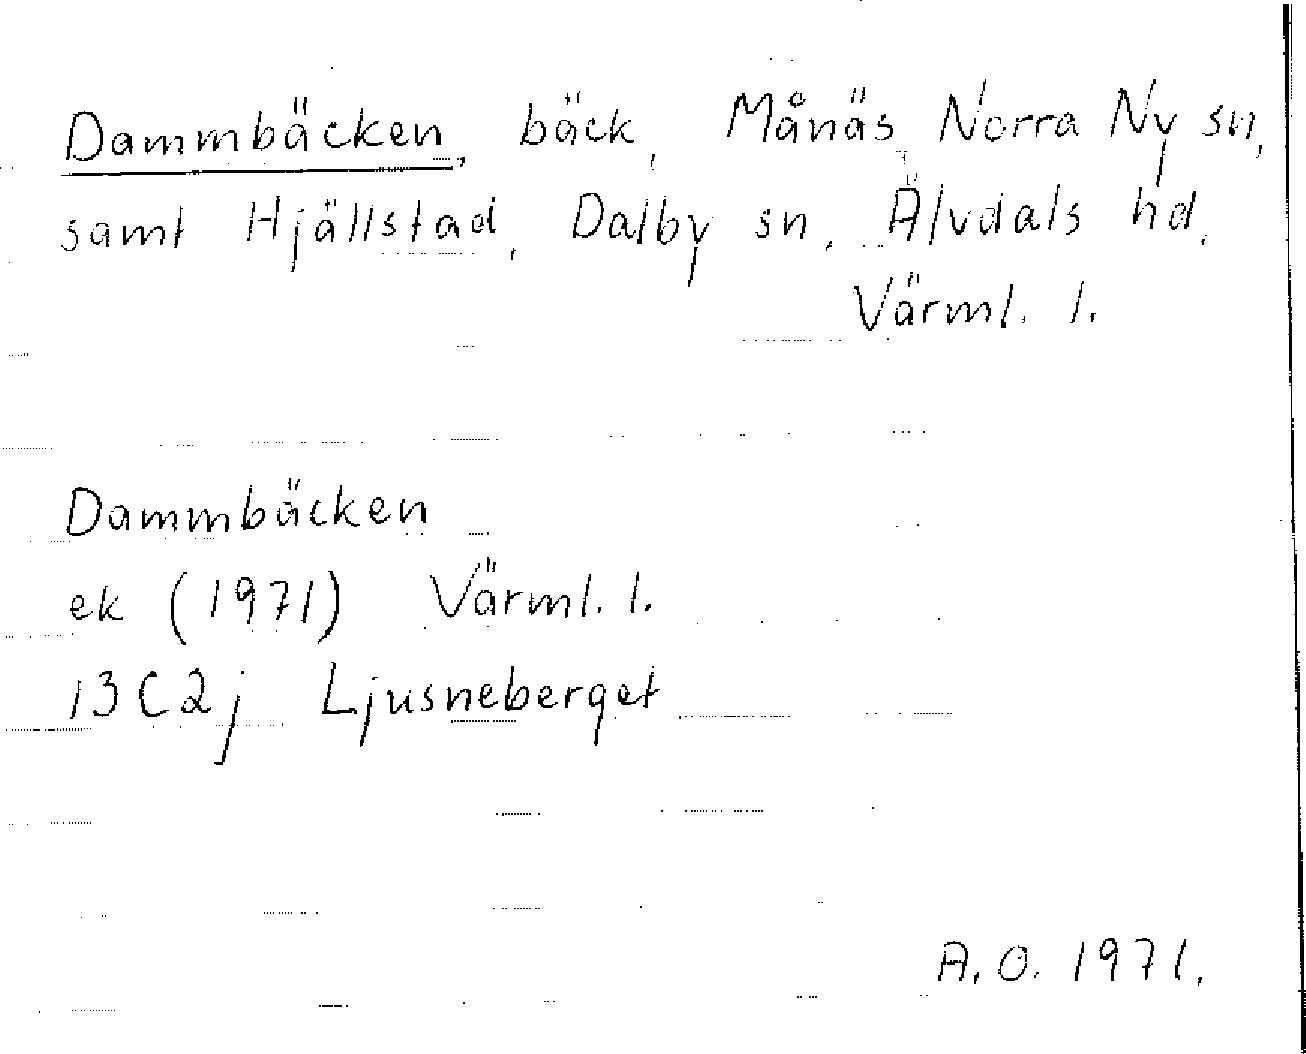 Dammbäcken, bäck, Månäs, Norra Ny sn,
samt Hjällstad, Dalby sn, Älvdals hd,
Värml. l.
Dammbäcken
ek (1971) Värml. l.
13C2j Ljusneberget
A.O. 1971.